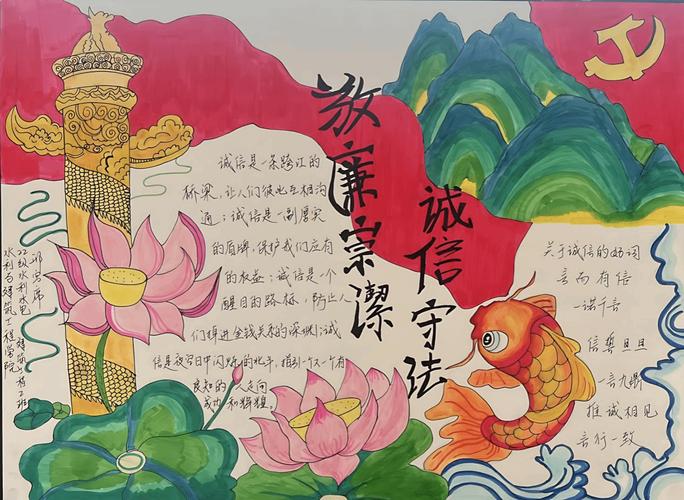 敬廉崇潔
诚信守法
诚信是一条跨江的
桥梁,让人们彼此互相沟
通;诚信是一副厚实
的盾牌,保护我们应有
的权益;诚信是一个
醒目的路标,防止人
们掉进金钱关系的深渊;诚
信是夜空中闪烁的北斗,指引一个又一个有
良知的人走向
成功和辉煌。
关于诚信的好词
言而有信
一诺千金
信誓旦旦
一言九鼎
推诚相见
言行一致
22级水利水电建筑工程2班
水利与建筑工程学院